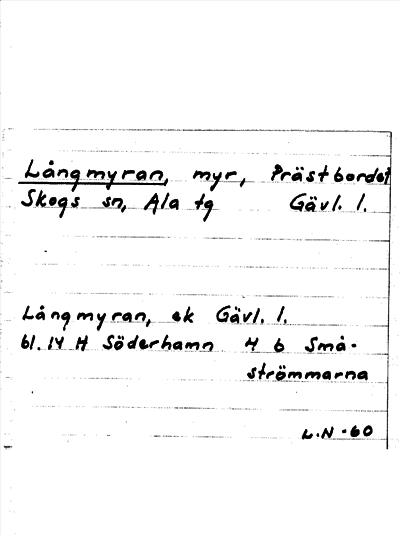 Långmyran, myr, Prästbordet
Skogs sn, Ala tg Gävl. l.
Långmyran, ek Gävl. l.
bl. 14 H Söderhamn 4 b Små-
strömmarna
L.N -60